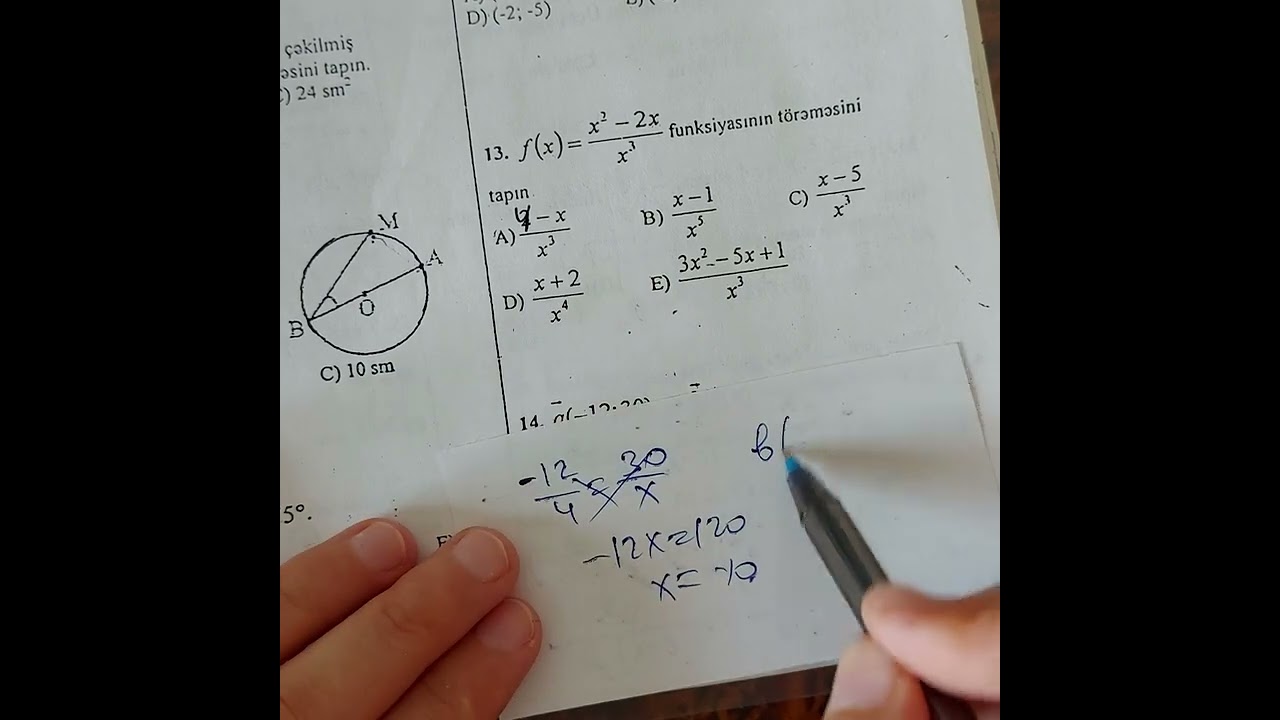 çəkilmiş
əsini tapın.
C) 24 sm²
M
A
O
B
C) 10 sm
5°.
D) (-2; -5)
13. f(x) = (x² − 2x)/x³ funksiyasının törəməsini
tapın
A) (4 − x)/x³ B) (x − 1)/x⁵ C) (x − 5)/x³
D) (x + 2)/x⁴ E) (3x² − 5x + 1)/x³
14.
-12/4 = 30/x
-12x=120
x= -10
b(